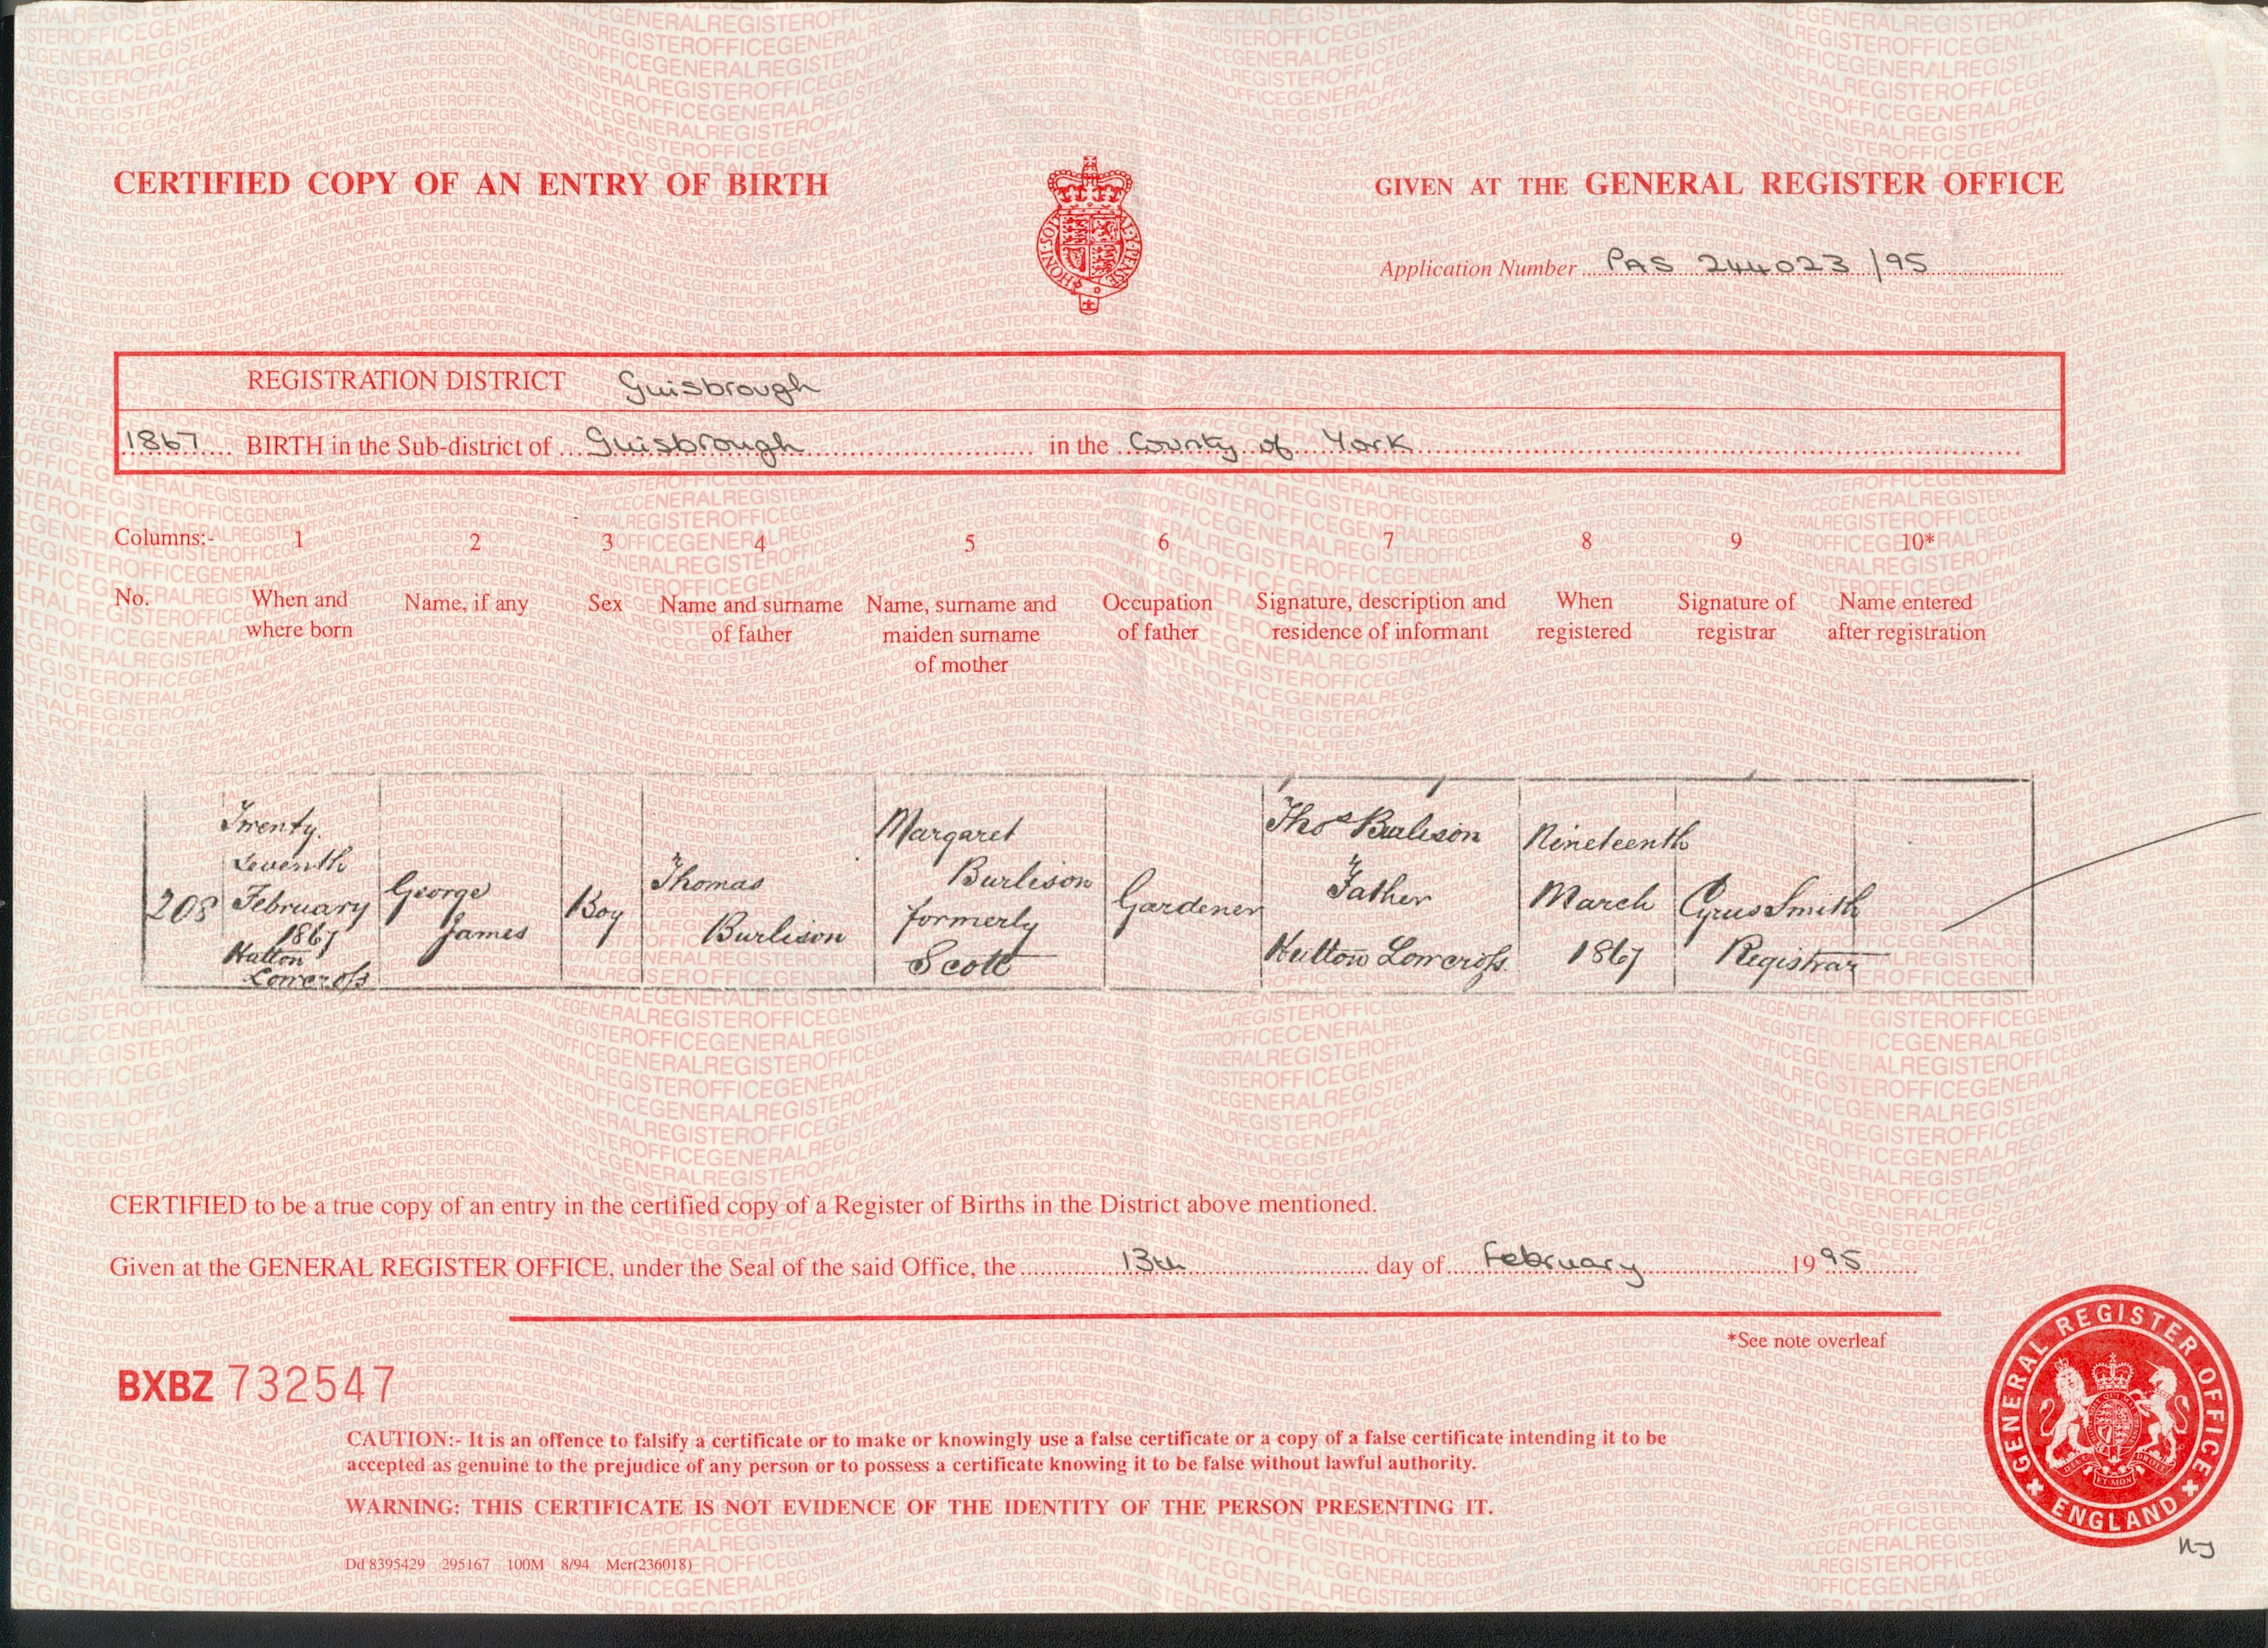 CERTIFIED COPY OF AN ENTRY OF BIRTH
GIVEN AT THE GENERAL REGISTER OFFICE
HONI·SOIT
AL·Y·PENSE
Application Number PAS 244023 /95
REGISTRATION DISTRICT Guisbrough
1867 BIRTH in the Sub-district of Guisbrough in the County of York
Columns:- 1 2 3 4 5 6 7 8 9 10*
No. When and where born
Name, if any
Sex
Name and surname of father
Name, surname and maiden surname of mother
Occupation of father
Signature, description and residence of informant
When registered
Signature of registrar
Name entered after registration
208
Twenty.
Seventh
February
1867
Hutton
Lowcross
George
James
Boy
Thomas
Burlison
Margaret
Burlison
formerly
Scott
Gardener
Thos Burlison
Father
Hutton Lowcross
Nineteenth
March
1867
Cyrus Smith
Registrar
CERTIFIED to be a true copy of an entry in the certified copy of a Register of Births in the District above mentioned.
Given at the GENERAL REGISTER OFFICE, under the Seal of the said Office, the 13th day of February 1995
*See note overleaf
BXBZ 732547
CAUTION:- It is an offence to falsify a certificate or to make or knowingly use a false certificate or a copy of a false certificate intending it to be
accepted as genuine to the prejudice of any person or to possess a certificate knowing it to be false without lawful authority.
WARNING: THIS CERTIFICATE IS NOT EVIDENCE OF THE IDENTITY OF THE PERSON PRESENTING IT.
Dd 8395429 295167 100M 8/94 Mcr(236018)
GENERAL REGISTER OFFICE
ENGLAND